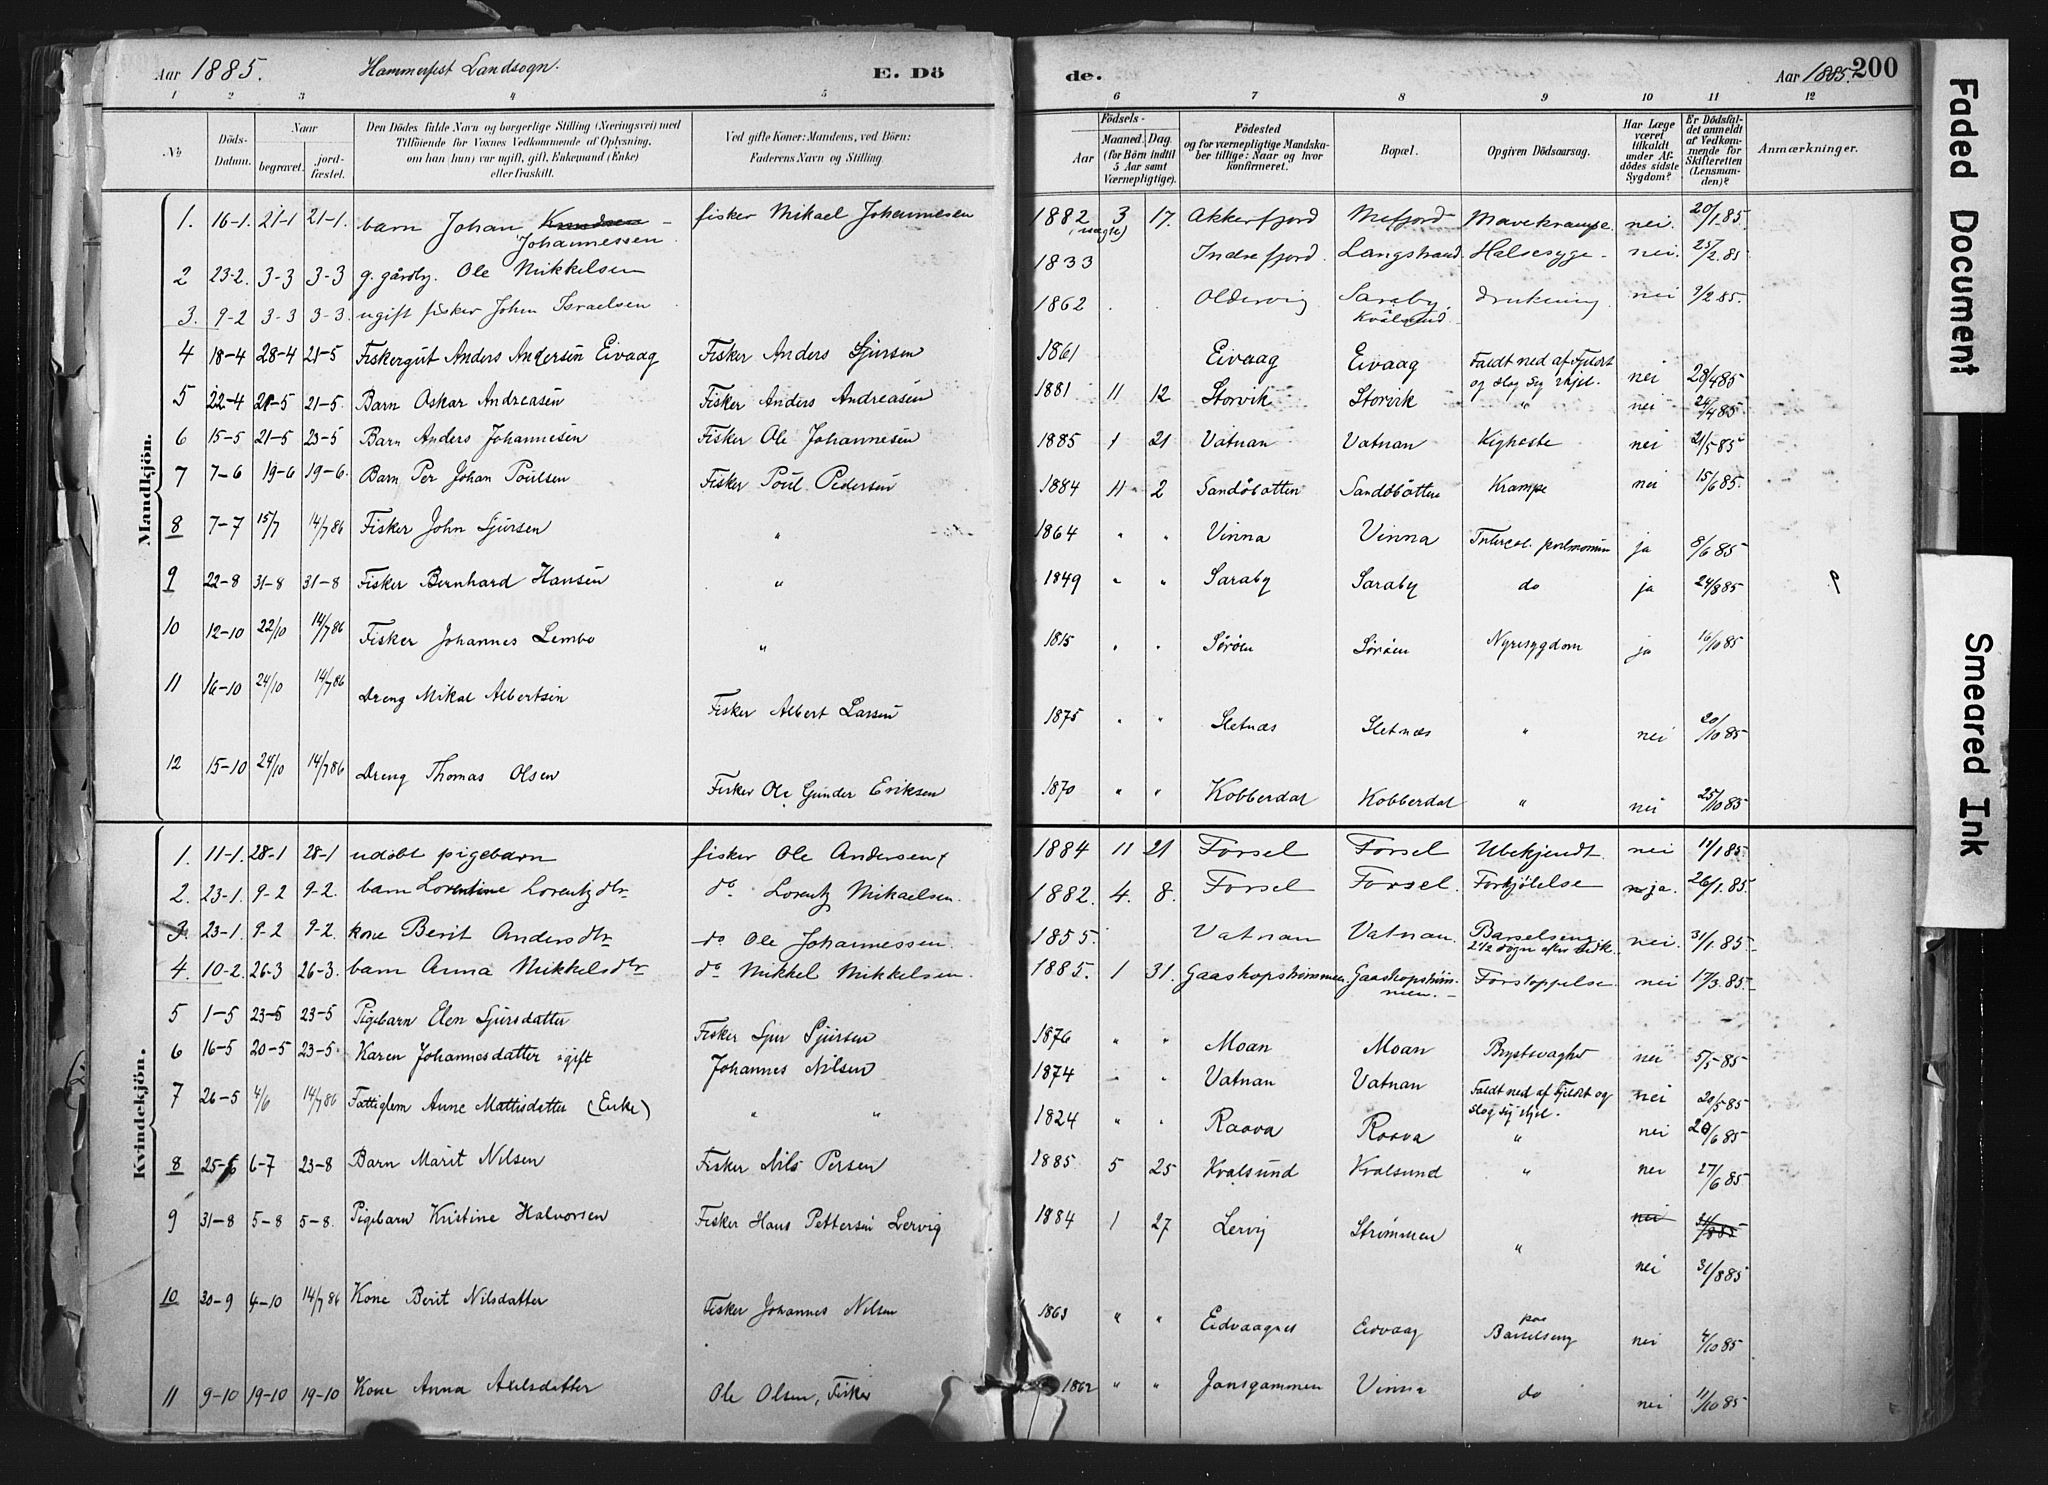 Aar 1885. Hammerfest Landsogn. E. Dö de. Aar 1885. 200
1 2 3 4 5 6 7 8 9 10 11 12
No
Döds-Datum.
Naar
begravet.
jord-fæstet.
Den Dödes fulde Navn og borgerlige Stilling (Næringsvei) med
Tilföiende for Voxnes Vedkommende af Oplysning,
om han (hun) var ugift, gift, Enkemand (Enke)
eller fraskilt.
Ved gifte Koner: Mandens, ved Börn:
Faderens Navn og Stilling.
Födsels-
Aar
Maaned. Dag.
(for Börn indtil
5 Aar samt
Værnepligtige).
Födested
og for værnepligtige Mandska-
ber tillige: Naar og hvor
konfirmeret.
Bopæl.
Opgiven Dödsaarsag.
Har Læge
været
tilkaldt
under Af-
dödes sidste
Sygdom?
Er Dödsfal-
det anmeldt
af Vedkom-
mende for
Skifteretten
(Lensman-
den)?
Anmærkninger.
Mandkjön.
1. 16-1. 21-1 21-1. barn Johan Knudsen Johannessen. fisker Mikael Johannesen 1882 3 17. Akkerfjord Mefjord Mavekrampe. nei. 20/1.85.
2 23-2. 3-3 3-3 g. gårdbr. Ole Mikkelsen 1833 Indrefjord. Langstrand. Halsesyge. nei. 25/2.85.
3. 9-2 3-3 3-3. ugift fisker Johan Israelsen 1862 Oldervig Saraby. Kvalsund. drukning. nei 9/2.85.
4 18-4 28-4 21-5 Fiskergut Anders Andersen Eivaag Fisker Anders Sjursen 1861 Eivaag Eivaag Faldt ned af Fjeldet og slog sig ihjel. nei 28/4 85
5 22-4 21-5 21-5. Barn Oskar Andreasen Fisker Anders Andreasen 1881 11 12 Storvik Storvik " nei 24/4 85
6 15-5 21-5 23-5 Barn Anders Johannesen Fisker Ole Johannesen 1885 1 21 Vatnan Vatnan Kighoste nei 21/5 85
7 7-6 19-6 19-6. Barn Per Johan Poulsen Fisker Poul Pedersen 1884 11 2 Sandöbotten Sandöbotten Krampe nei 15/6 85.
8 7-7 15/7 14/7 86 Fisker John Sjursen " 1864 " " Vinna Vinna pulmonum ja 8/6 85
9 22-8 31-8 31-8 Fisker Bernhard Hansen " 1849 " " Saraby Saraby do ja 24/8 85
10 12-10 22/10 14/7 86 Fisker Johannes Lembo " 1815 " " Sörøen Sörøen Nyresygdom ja 16/10 85
11 16-10 24/10 14/7 86 Dreng Mikal Albertsen Fisker Albert Larsen 1875 " " Sletnæs Sletnæs " nei 20/10 85
12 15-10 24/10 14/7 86 Dreng Thomas Olsen Fisker Ole Gunder Eriksen 1870 " " Kobberdal Kobberdal " nei 25/10 85
Kvindekjön.
1. 11-1. 28-1 28-1 udöbt pigebarn fisker Ole Andersen 1884 11 21 Forsøl Forsøl Ubekjendt. nei 11/1 85.
2. 23-1. 9-2 9-2. barn Lorentine Lorentzdtr do Lorentz Mikaelsen. 1882. 4. 8. Forsøl Forsøl. Forkjölelse ja. 26/1.85.
3. 23-1. 9-2 9-2. kone Berit Andersdtr do Ole Johannessen. 1855. Vatnan Vatnan. Barselseng 2 1/2 døgn efter nei. 31/1.85.
4. 10-2. 26-3 26-3. barn Anna Mikkelsdtr do Mikkel Mikkelsen. 1885. 1 31. Gaashopstrømmen. Gaashopstrøm-men. Forstoppelse. nei 17/3.85.
5 1-5 23-5 23-5 Pigebarn Elen Sjursdatter Fisker Sjur Sjursen 1876 " " Moan Moan Brystsvaghed nei 5/5 85
6 16-5 20-5 23-5. Karen Johannesdatter gift Johannes Nilsen 1874 " Vatnan Vatnan Faldt ned af Fjeldet og slog sig ihjel. nei 20/5 85
7 26-5 4/6 14/7 86 Fattiglem Anne Mattisdatter (Enke) " " 1824 " " Raava Raava " nei 20/6 85
8 25-6 6-7 23-8 Barn Marit Nilsen Fisker Nils Persen 1885 5 25 Kvalsund Kvalsund " nei 27/6 85
9 31-8 5-8 5-8. Pigebarn Kristine Halvorsen Fisker Hans Pettersen Lervig 1884 1 27 Lervig Strømmen " nei
nei 31/8 85
10 30-9 4-10 14/7 86 Kone Berit Nilsdatter Fisker Johannes Nilsen 1863 " " Eidvaagnes Eidvaag paa Barselseng nei 4/10 85
11 9-10 19-10 19-10 Kone Anna Axelsdatter Ole Olsen, Fisker 1862 " " Jansgammen Vinna do nei 11/10 85
Faded Document
Smeared Ink